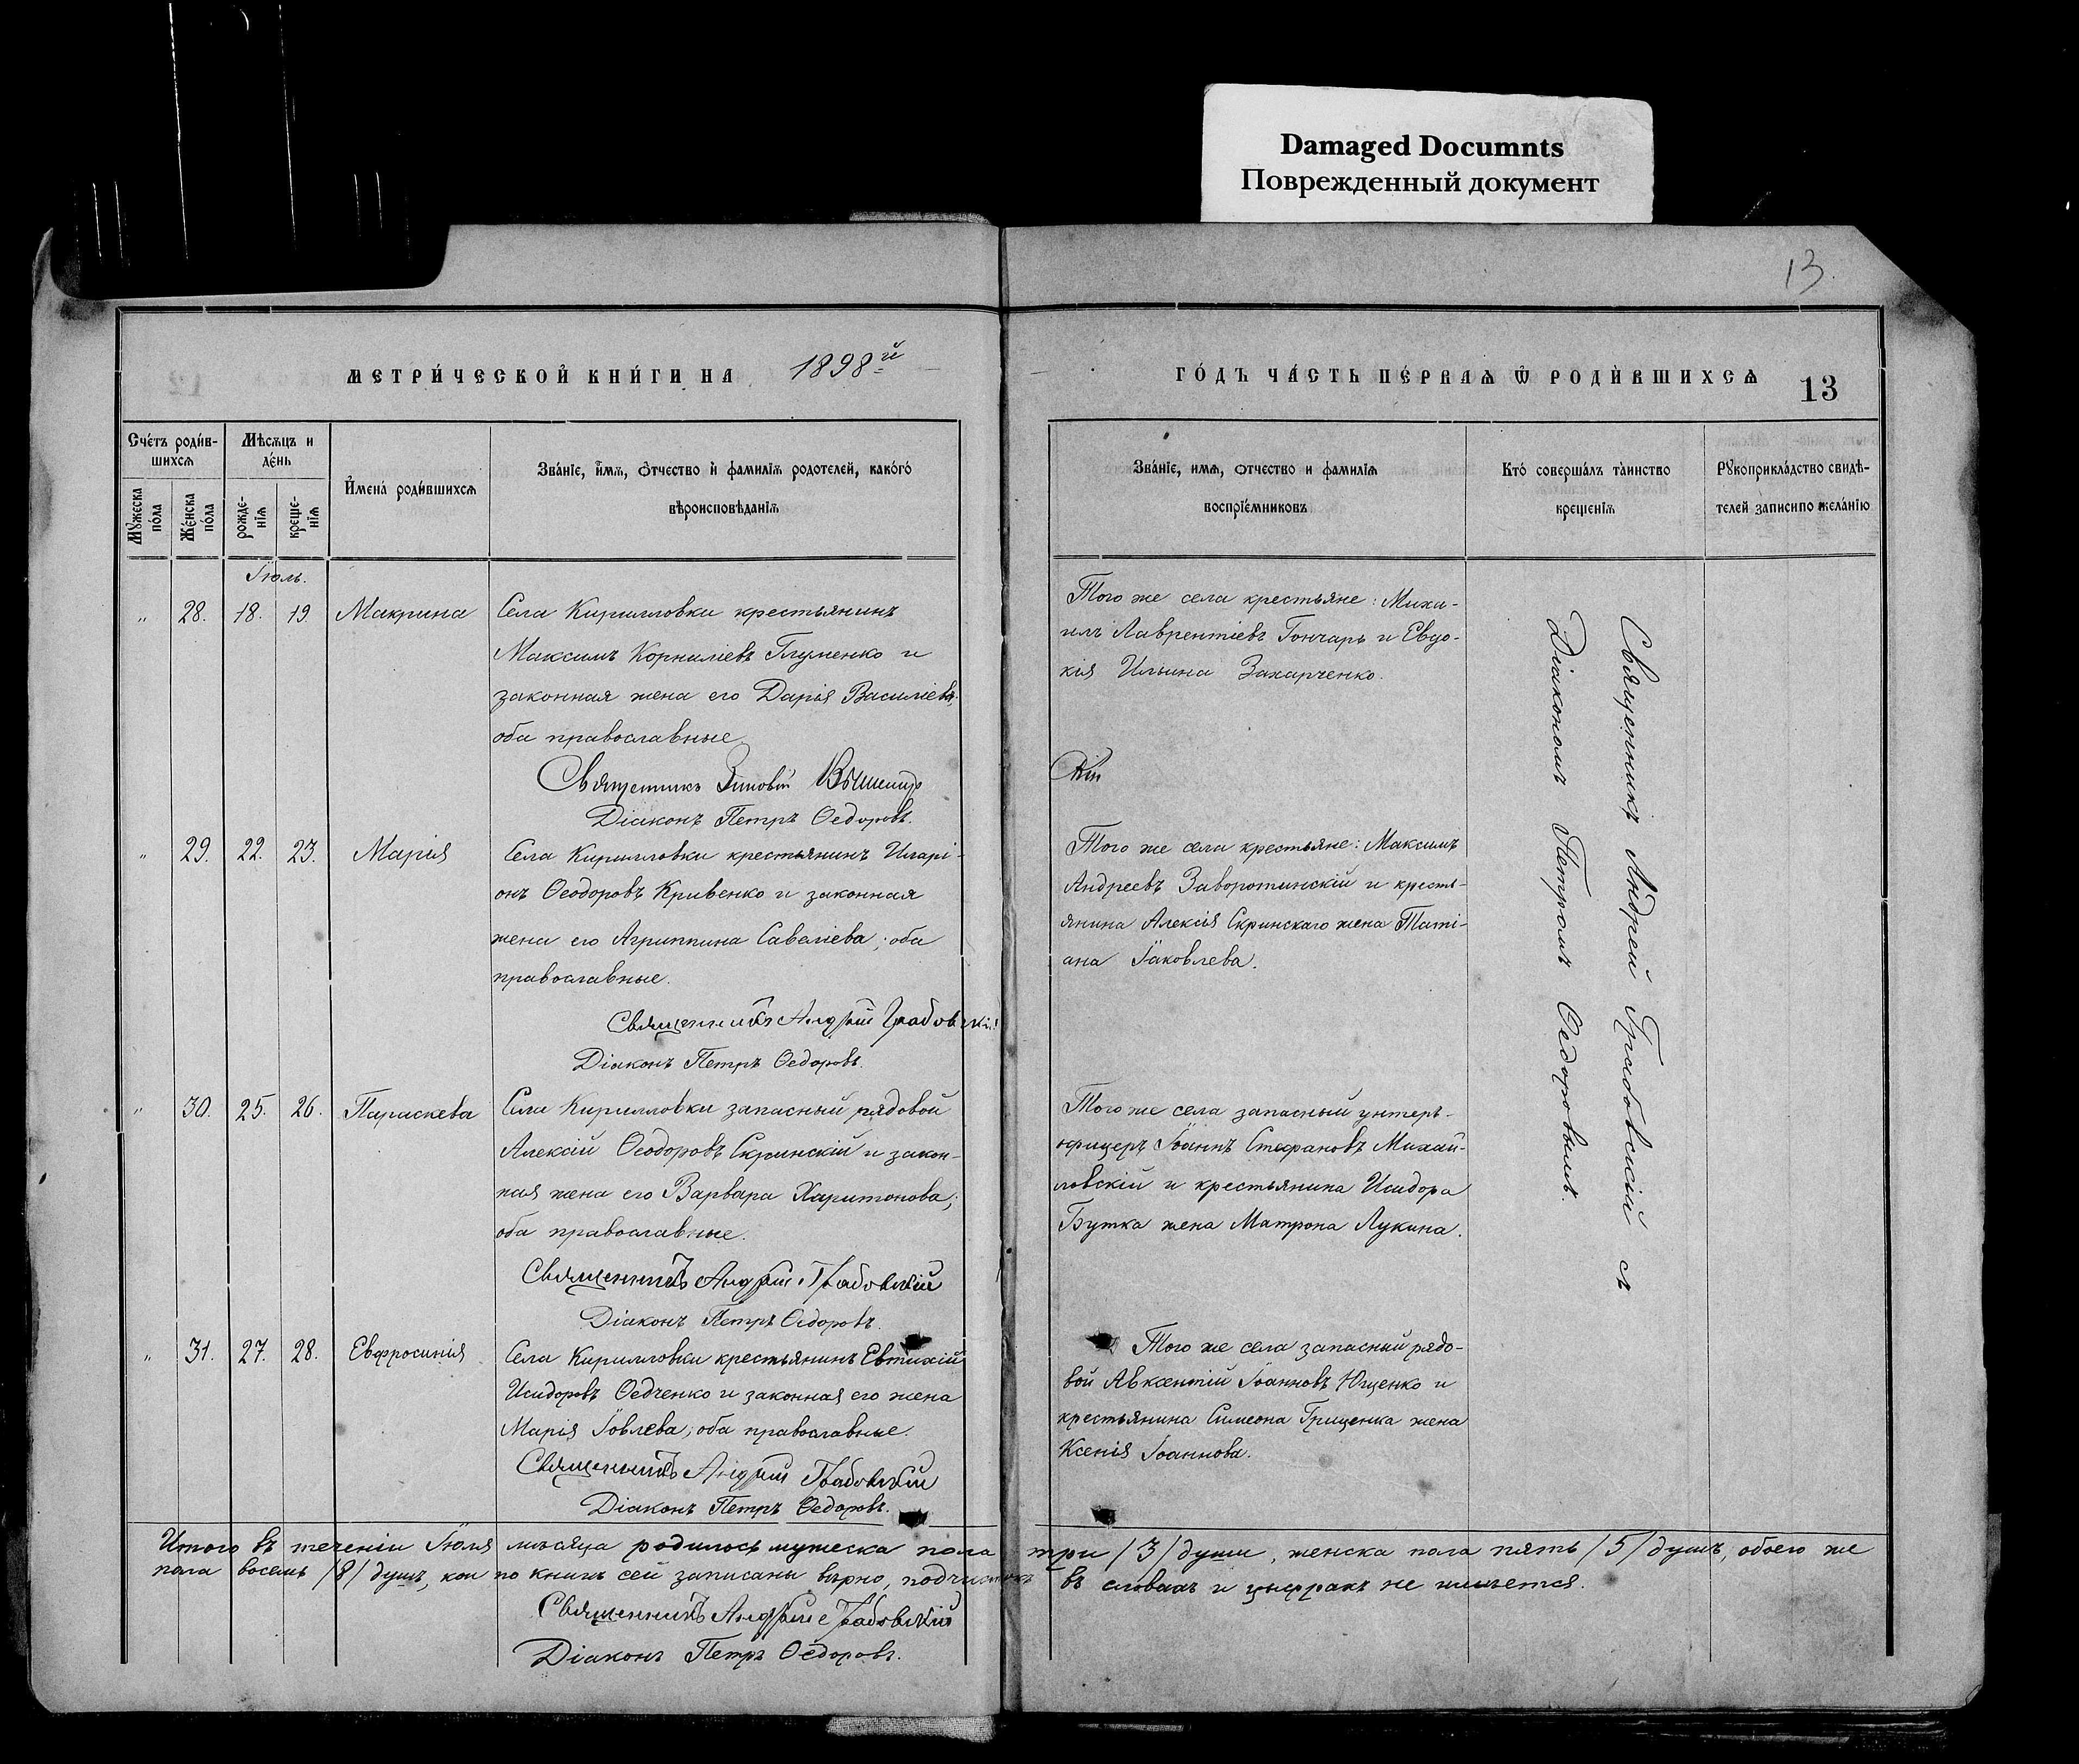 Damaged Documnts
Поврежденный документ
13.
МЕТРИ́ЧЕСКОЙ КНИ́ГИ НА 1898й
ГО́ДЪ ЧА́СТЬ ПЕ́РВАѦ Ѿ РОДИ́ВШИХСѦ 13
Сче́тъ роди́в-
шихсѧ
Мѣсѧцъ и
де́нь
Мꙋжеска
по́ла
Же́нска
по́ла
рожде-
нїѧ
креще-
нїѧ
И҆мена̀ роди́вшихсѧ
Зва́нїе, и҆́мѧ, ѻ҆́тчество и҆ фамилїѧ родотелей, како́гѡ
вѣроисповѣ́данїѧ
Зва́нїе, имѧ, ѻтчество и фамилїѧ
воспрїе́мниковъ
Кто̀ соверша́лъ та̀инство
креще́нїѧ
Рꙋкоприкла́дство свидѣ́-
телей записи по жела́нїю
Іюль.
„ 28. 18. 19. Макрина
Села Кирилловки крестьянинъ
Максимъ Корниліевъ Глуменко и
законная жена его Дарія Василіева,
оба православные
Священникъ Зиновій
Діаконъ Петръ Ѳедоровъ.
Того же села крестьяне: Миха-
илъ Лаврентіевъ Гончаръ и Евдо-
кія Ильина Захарченко.
„ 29. 22. 23. Марія
Села Кирилловки крестьянинъ Иларі-
онъ Ѳеодоровъ Кривенко и законная
жена его Агриппина Савеліева; оба
православные.
Священникъ Андрей Грабовскій
Діаконъ Петръ Ѳедоровъ.
Того же села крестьяне: Максимъ
Андреевъ Заворотинскій и кресть-
янина Алексія Скринскаго жена Таті-
ана Іаковлева.
„ 30. 25. 26. Параскева
Села Кирилловки запасный рядовой
Алексій Ѳеодоровъ Скринскій и закон-
ная жена его Варвара Харитонова;
оба православные.
Священникъ Андрей Грабовскій
Діаконъ Петръ Ѳедоровъ.
Того же села запасный унтеръ-
офицеръ Іоаннъ Стефановъ Михай-
ловскій и крестьянина Исидора
Бутка жена Матрона Лукина.
„ 31. 27. 28. Евфросинія
Села Кирилловки крестьянинъ Евтихій
Исидоровъ Ѳедченко и законная его жена
Марія Іовлева; оба православные.
Священникъ Андрей Грабовскій
Діаконъ Петръ Ѳедоровъ.
Того же села запасный рядо-
вой Авксентій Іоанновъ Ющенко и
крестьянина Симеона Гриценка жена
Ксенія Іоаннова.
Священникъ Андрей Грабовскій съ
Діакономъ Петромъ Ѳедоровымъ.
Итого въ теченіи Іюля мѣсяца родилось мужеска пола три /3/ души, женска пола пять /5/ душъ, обоего же
пола восемь /8/ душъ, кои по книгѣ сей записаны вѣрно, подчистокъ въ словахъ и цыфрахъ не имѣется.
Священникъ Андрей Грабовскій
Діаконъ Петръ Ѳедоровъ.